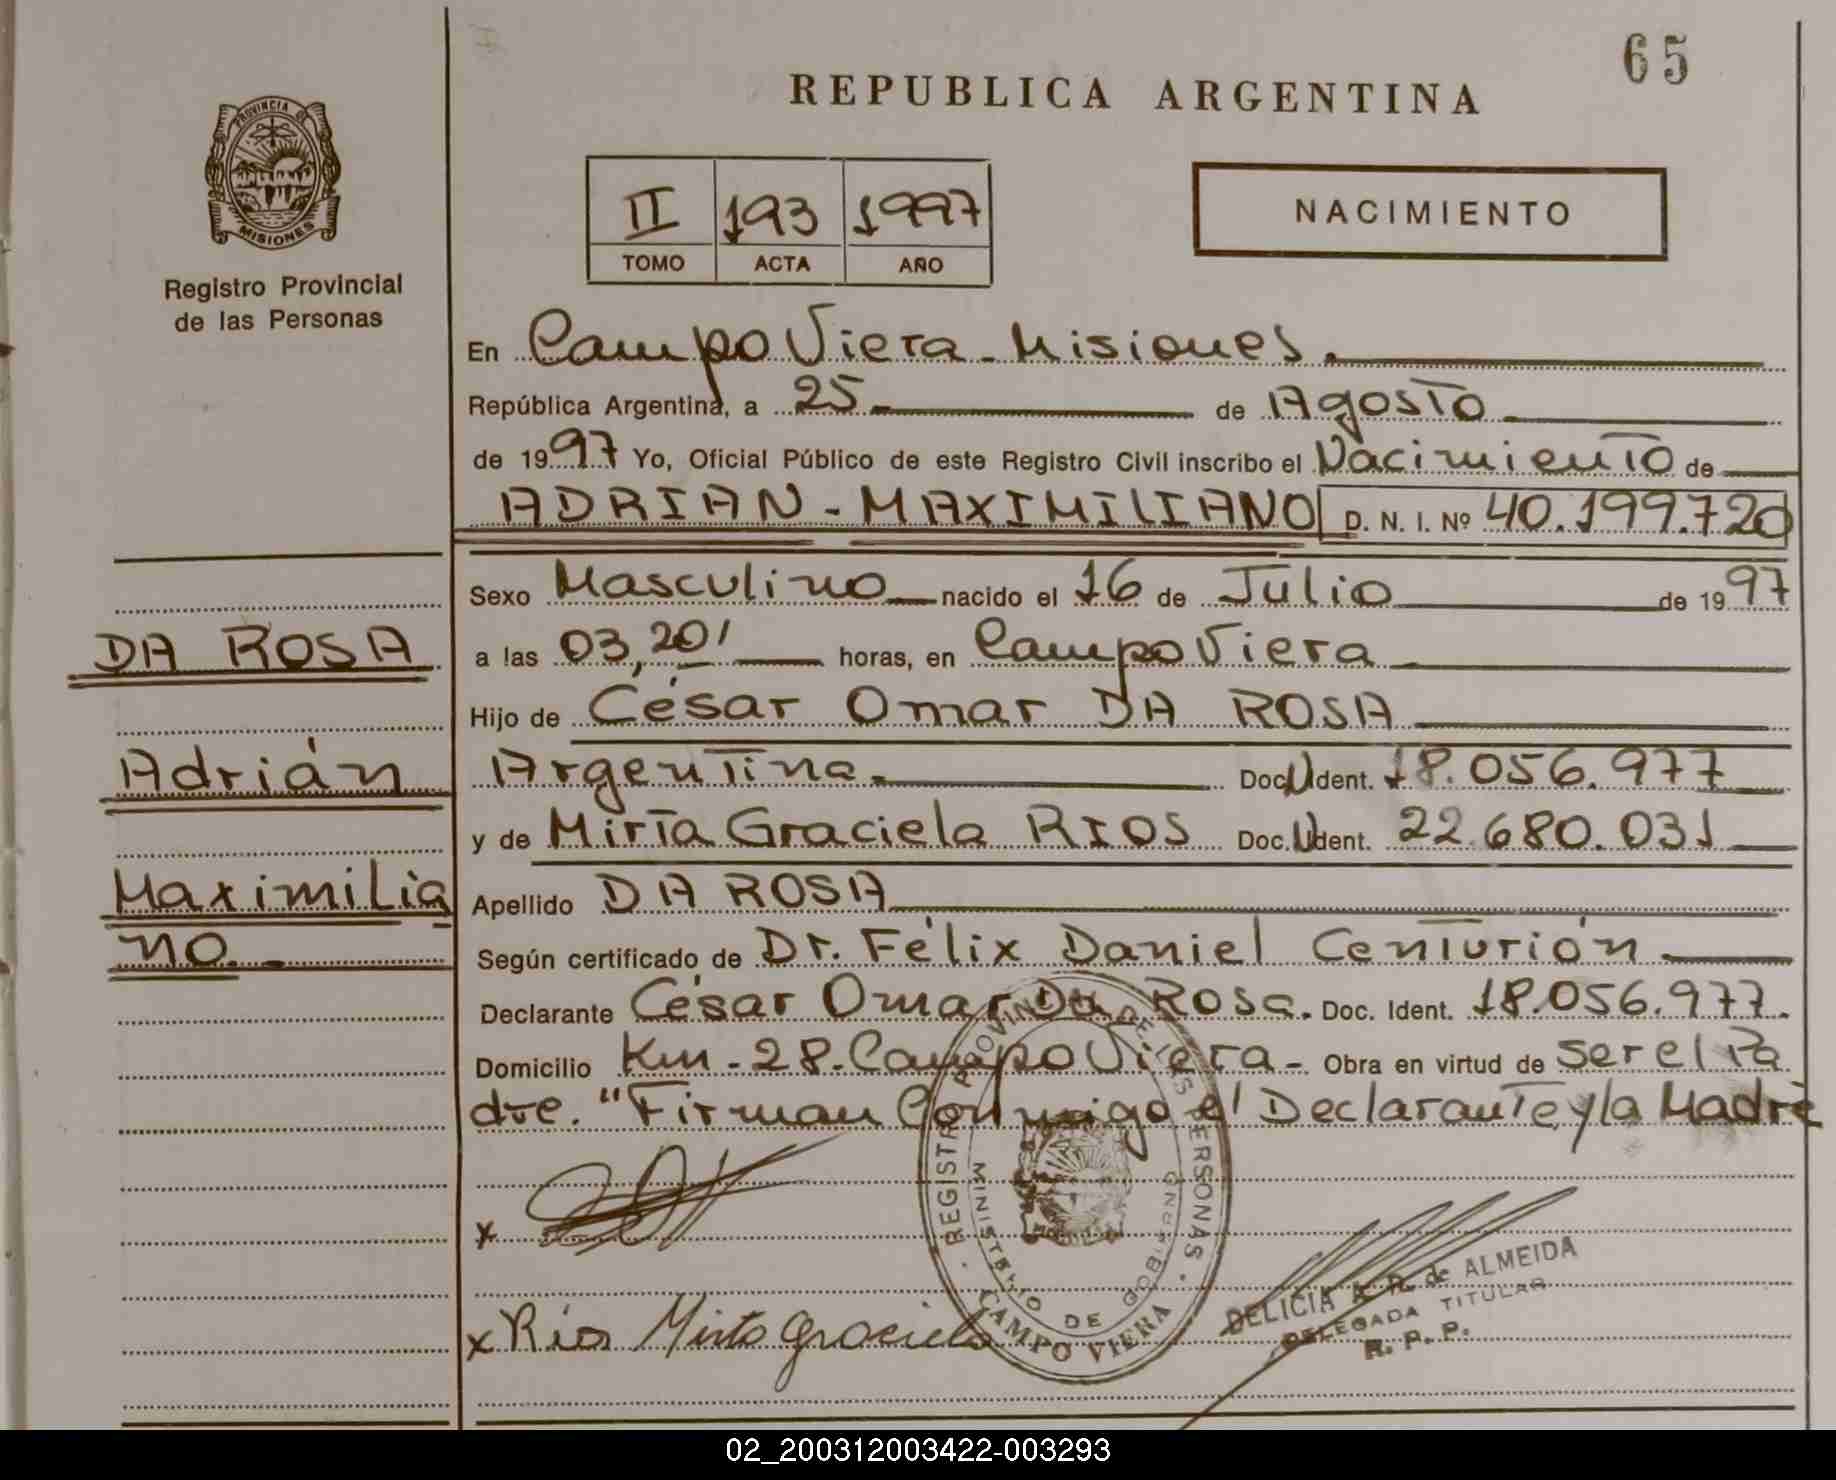 65
REPUBLICA ARGENTINA
PROVINCIA DE
MISIONES
Registro Provincial
de las Personas
II 193 1997
TOMO ACTA AÑO
NACIMIENTO
En Campo Viera - Misiones.
República Argentina, a 25 de Agosto
de 1997 Yo, Oficial Público de este Registro Civil inscribo el Nacimiento de
ADRIAN - MAXIMILIANO D. N. I. Nº 40.199.720
Sexo Masculino nacido el 16 de Julio de 1997
DA ROSA
a las 03,20' horas, en Campo Viera
Hijo de César Omar DA ROSA
Adrián
Argentina. Doc. Ident. 18.056.977
y de Mirta Graciela RIOS Doc. Ident. 22.680.031
Maximilia
Apellido DA ROSA
no.-
Según certificado de Dr. Félix Daniel Centurión
Declarante César Omar Da Rosa. Doc. Ident. 18.056.977.
Domicilio Km - 28 - Campo Viera - Obra en virtud de ser el Pa
dre. "Firman Conmigo el Declarante y la Madre
x
x Ríos Mirta Graciela
REGISTRO PROVINCIAL DE LAS PERSONAS
MINISTERIO DE GOBIERNO
CAMPO VIERA
DELICIA A. R. de ALMEIDA
DELEGADA TITULAR
R. P. P.
02_200312003422-003293